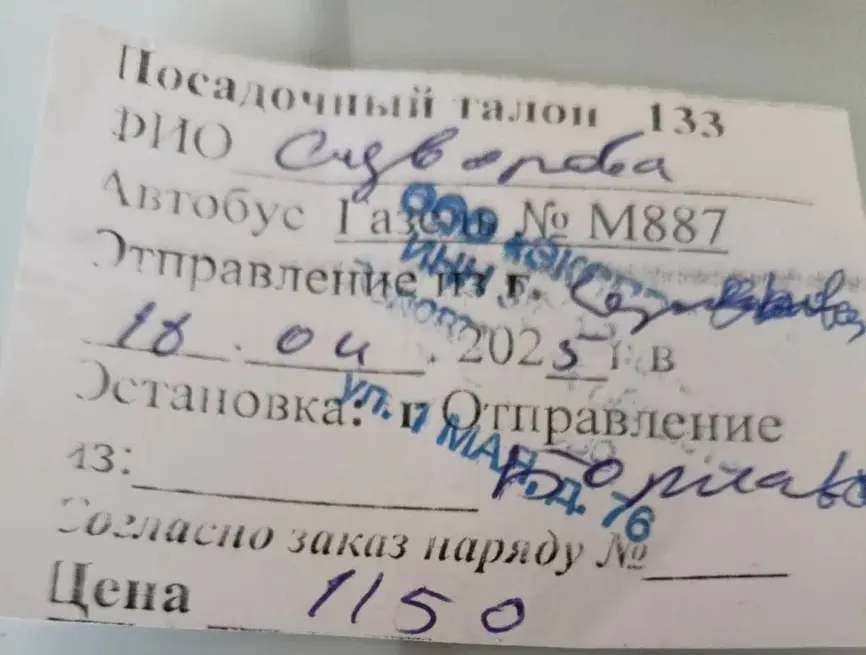 Посадочный талон 133
ФИО Суворова
Автобус Газель № М887
Отправление из г.
18.04.2025 г. в
Остановка: г. Отправление
из:
Согласно заказ наряду №
Цена 1150
ООО
ИНН
ул. 1 МАЯ, Д. 76